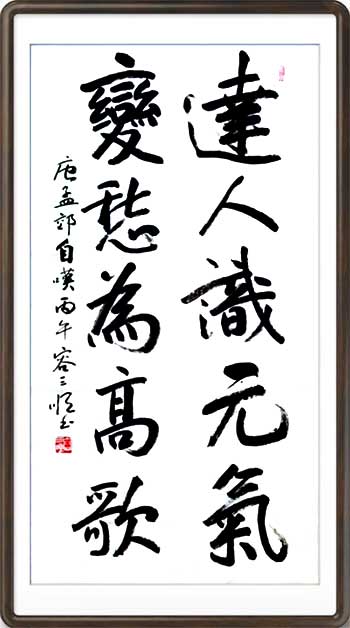 達人識元氣
變愁為高歌
唐孟郊自嘆丙午容三书